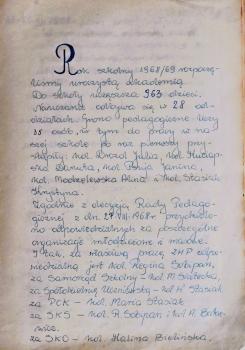 Rok szkolny 1968/69 rozpoczę-
liśmy uroczystą akademią.
Do szkoły uczęszcza 963 dzieci.
Nauczanie odbywa się w 28 od-
działach. Grono pedagogiczne liczy
osób, w tym do pracy w na-
szej szkole po raz pierwszy przy-
stąpiły: kol. Julia, kol.
Danuta, kol. Janina,
kol. Modzelewska Alina i kol. Stasiak
Krystyna.
Zgodnie z decyzją Rady Pedago-
gicznej z dn. 1968r. przydzielo-
no odpowiedzialnych za poszczególne
organizacje młodzieżowe i masowe.
I tak, za masową pracę ZHP odpo-
wiedzialną jest kol. Regina Sobipan,
za Samorząd Szkolny - kol.
za Spółdzielnię Uczniowską - kol. H. Stasiak
za PCK - kol. Maria Stasiak
za SKS - R. Sobipan i kol. A.
za SKO - kol. Halina Bielińska,